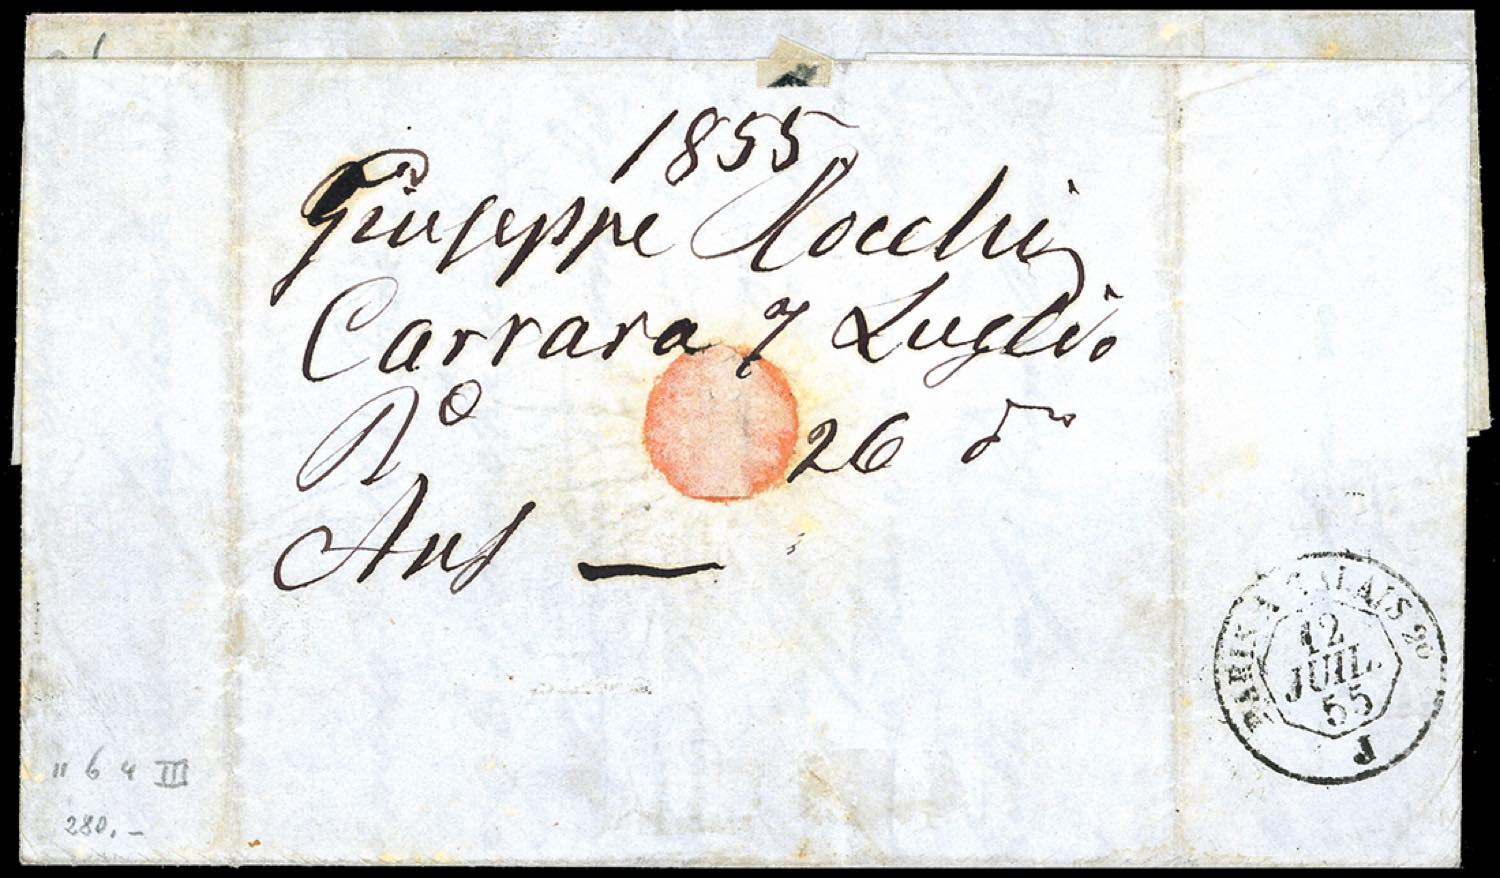 1855
Giuseppe Rocchi
Carrara 7 Luglio
Ro 26 do
Ans —
PARIS A CALAIS 2o
12
JUIL.
55
J
" 6 4 III
280.—